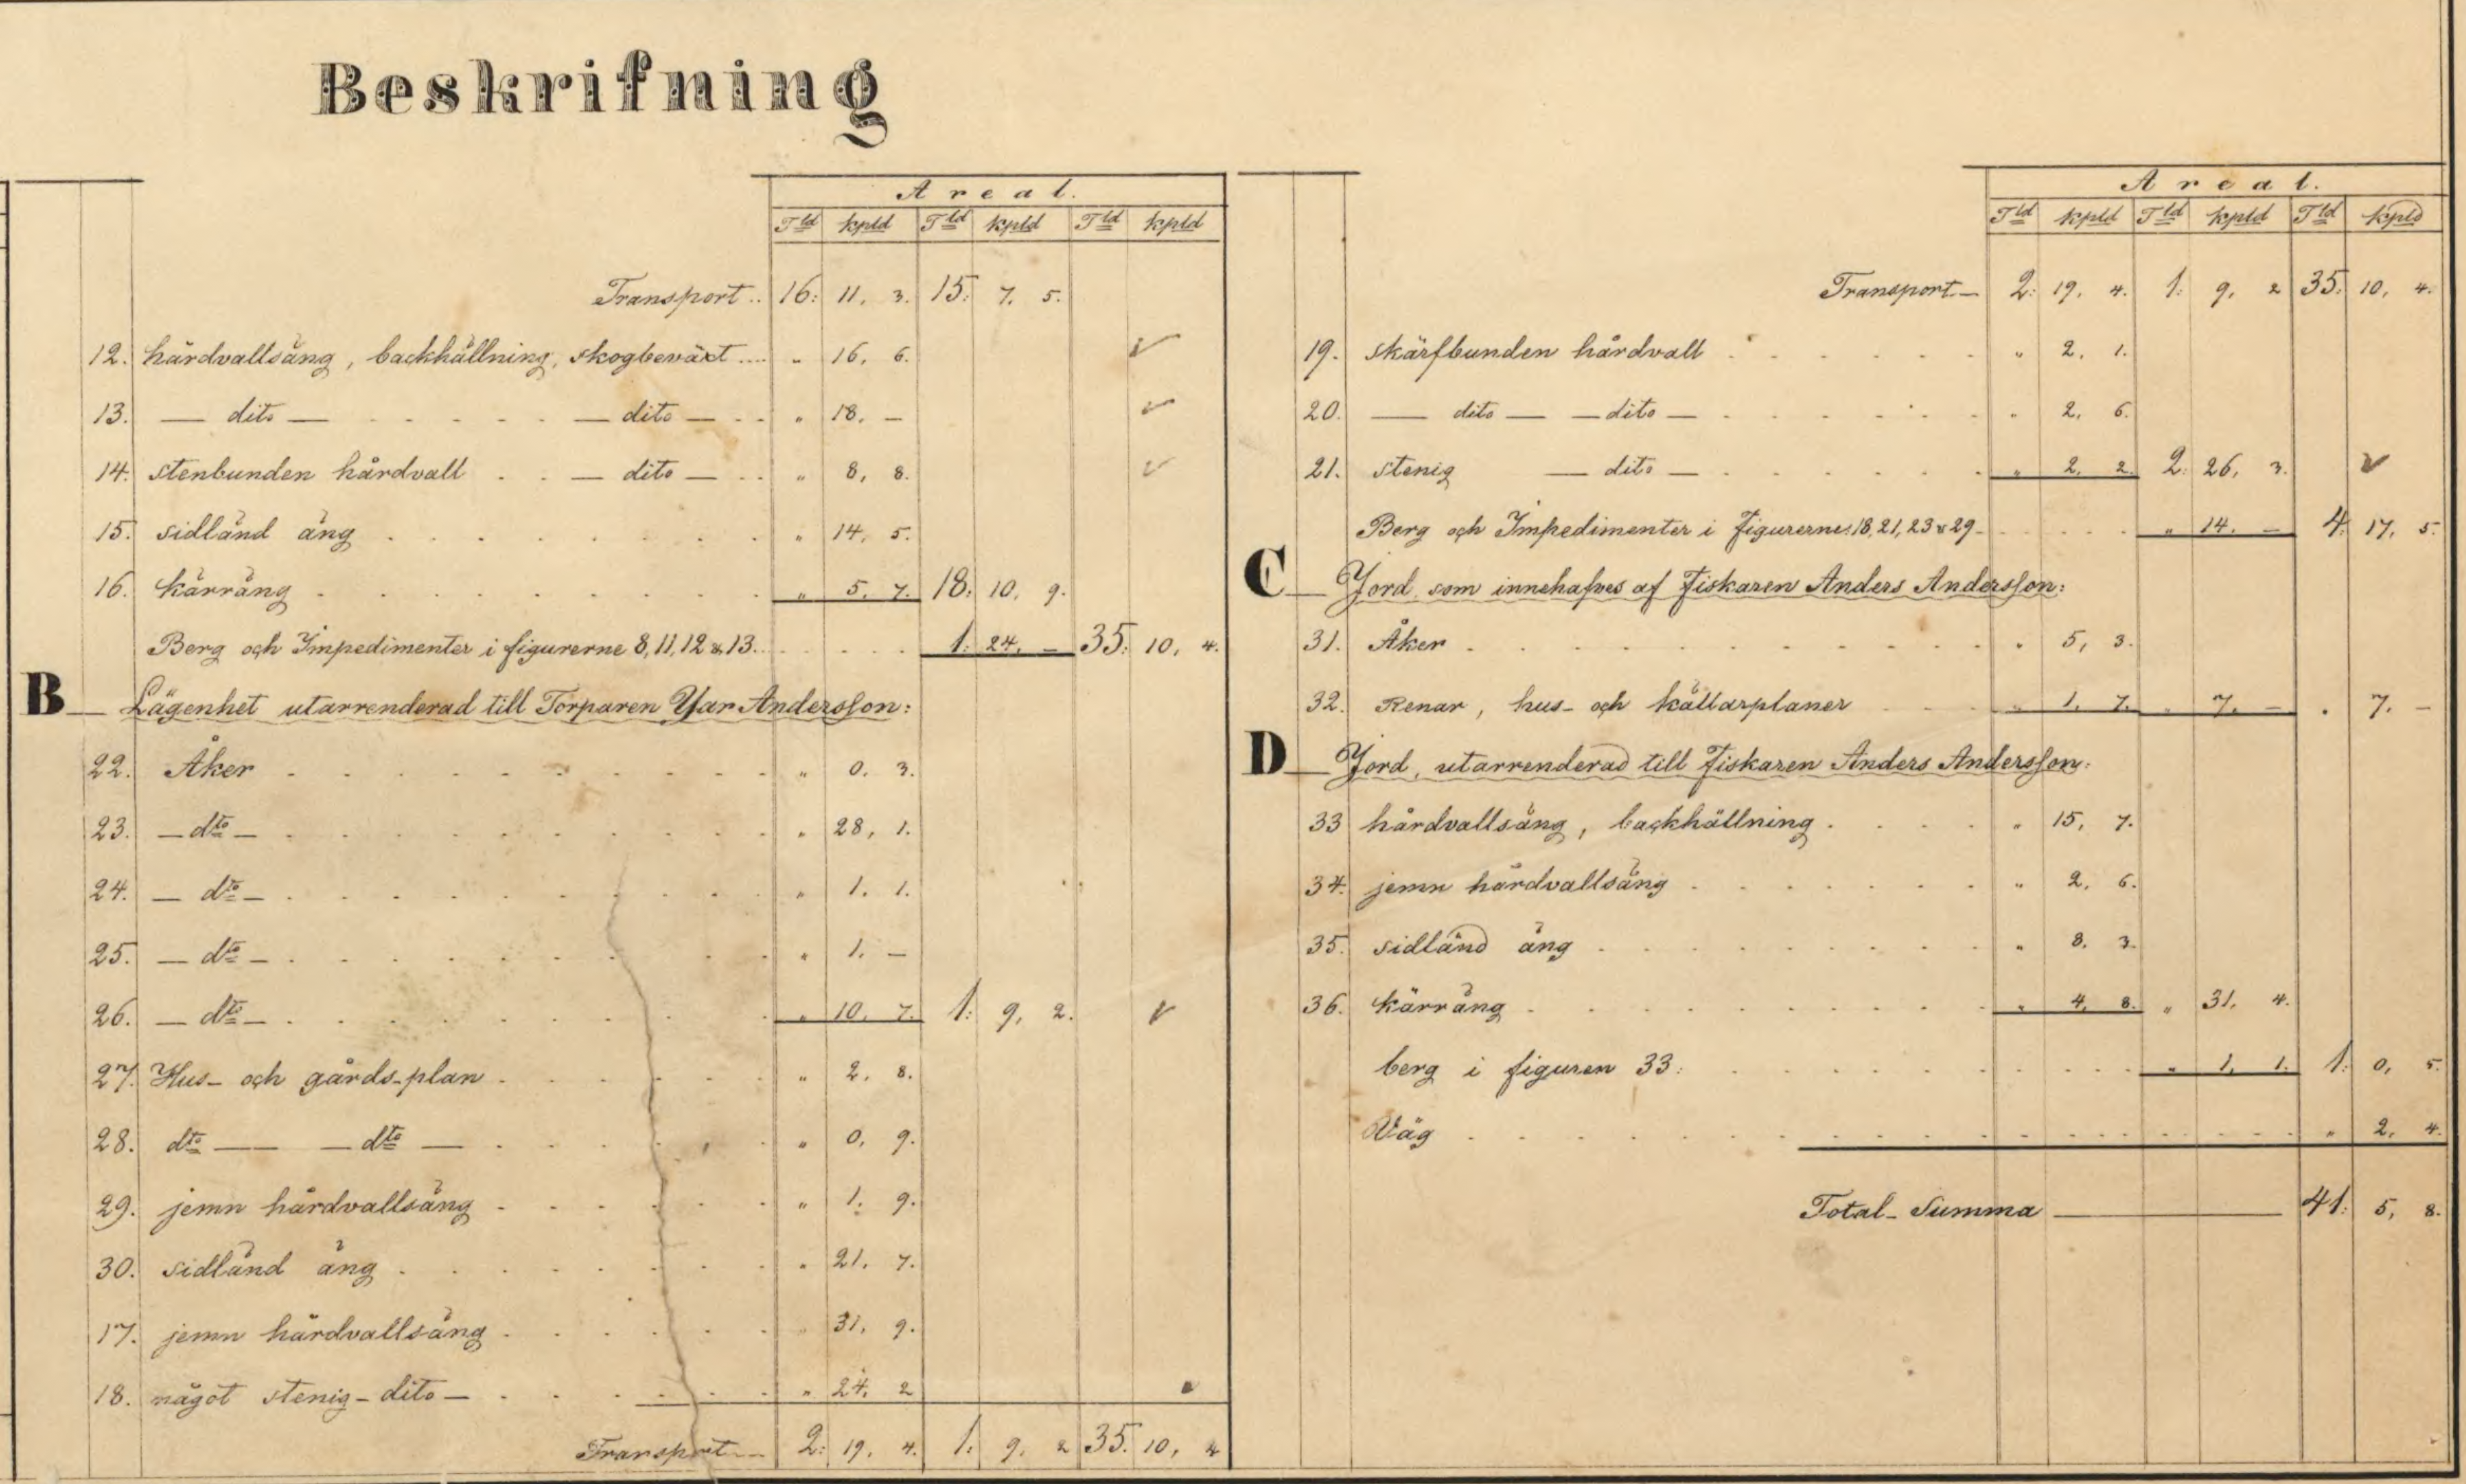 Beskrifning
Areal.
Tld kpld Tld kpld Tld kpld
Transport.. 16: 11, 3. 15: 7, 5.
12. hårdvallsäng, backhällning, skogbeväxt .... " 16, 6.
13. — dito — — dito — " 18, —
14. stenbunden hårdvall — dito — " 8, 8.
15. sidländ äng " 14, 5.
16. kärräng " 5, 7. 18: 10, 9.
Berg och Impedimenter i figurerne 8, 11, 12 & 13. 1: 24, — 35: 10, 4.
B Lägenhet utarrenderad till Torparen Yar Andersson:
22. Åker " 0, 3.
23. — dto — " 28, 1.
24. — dto — " 1, 1.
25. — dto — " 1, —
26. — dto — " 10, 7. 1: 9, 2.
27. Hus- och gårds-plan " 2, 8.
28. dto — — dto — " 0, 9.
29. jemn hårdvallsäng " 1, 9.
30. sidländ äng " 21, 7.
17. jemn hårdvallsäng " 31, 9.
18. något stenig - dito — " 24, 2
Transport 2: 19, 4. 1: 9, 2 35: 10, 4
Areal.
Tld kpld Tld kpld Tld kpld
Transport — 2: 19, 4. 1: 9, 2 35: 10, 4.
19. skärfbunden hårdvall " 2, 1.
20. — dito — — dito — " 2, 6.
21. stenig — dito — " 2, 2. 2: 26, 3.
Berg och Impedimenter i figurerne: 18, 21, 23 & 29 " 14, — 4: 17, 5.
C Jord, som innehafves af Fiskaren Anders Andersson:
31. Åker " 5, 3.
32. Renar, hus- och källarplaner " 1, 7. " 7, — " 7, —
D Jord, utarrenderad till Fiskaren Anders Andersson:
33 hårdvallsäng, backhällning " 15, 7.
34. jemn hårdvallsäng " 2, 6.
35. sidländ äng " 8, 3.
36. kärräng " 4, 8. " 31, 4.
berg i figuren 33. " 1, 1. 1: 0, 5.
Väg " 2, 4.
Total-Summa — 41: 5, 8.